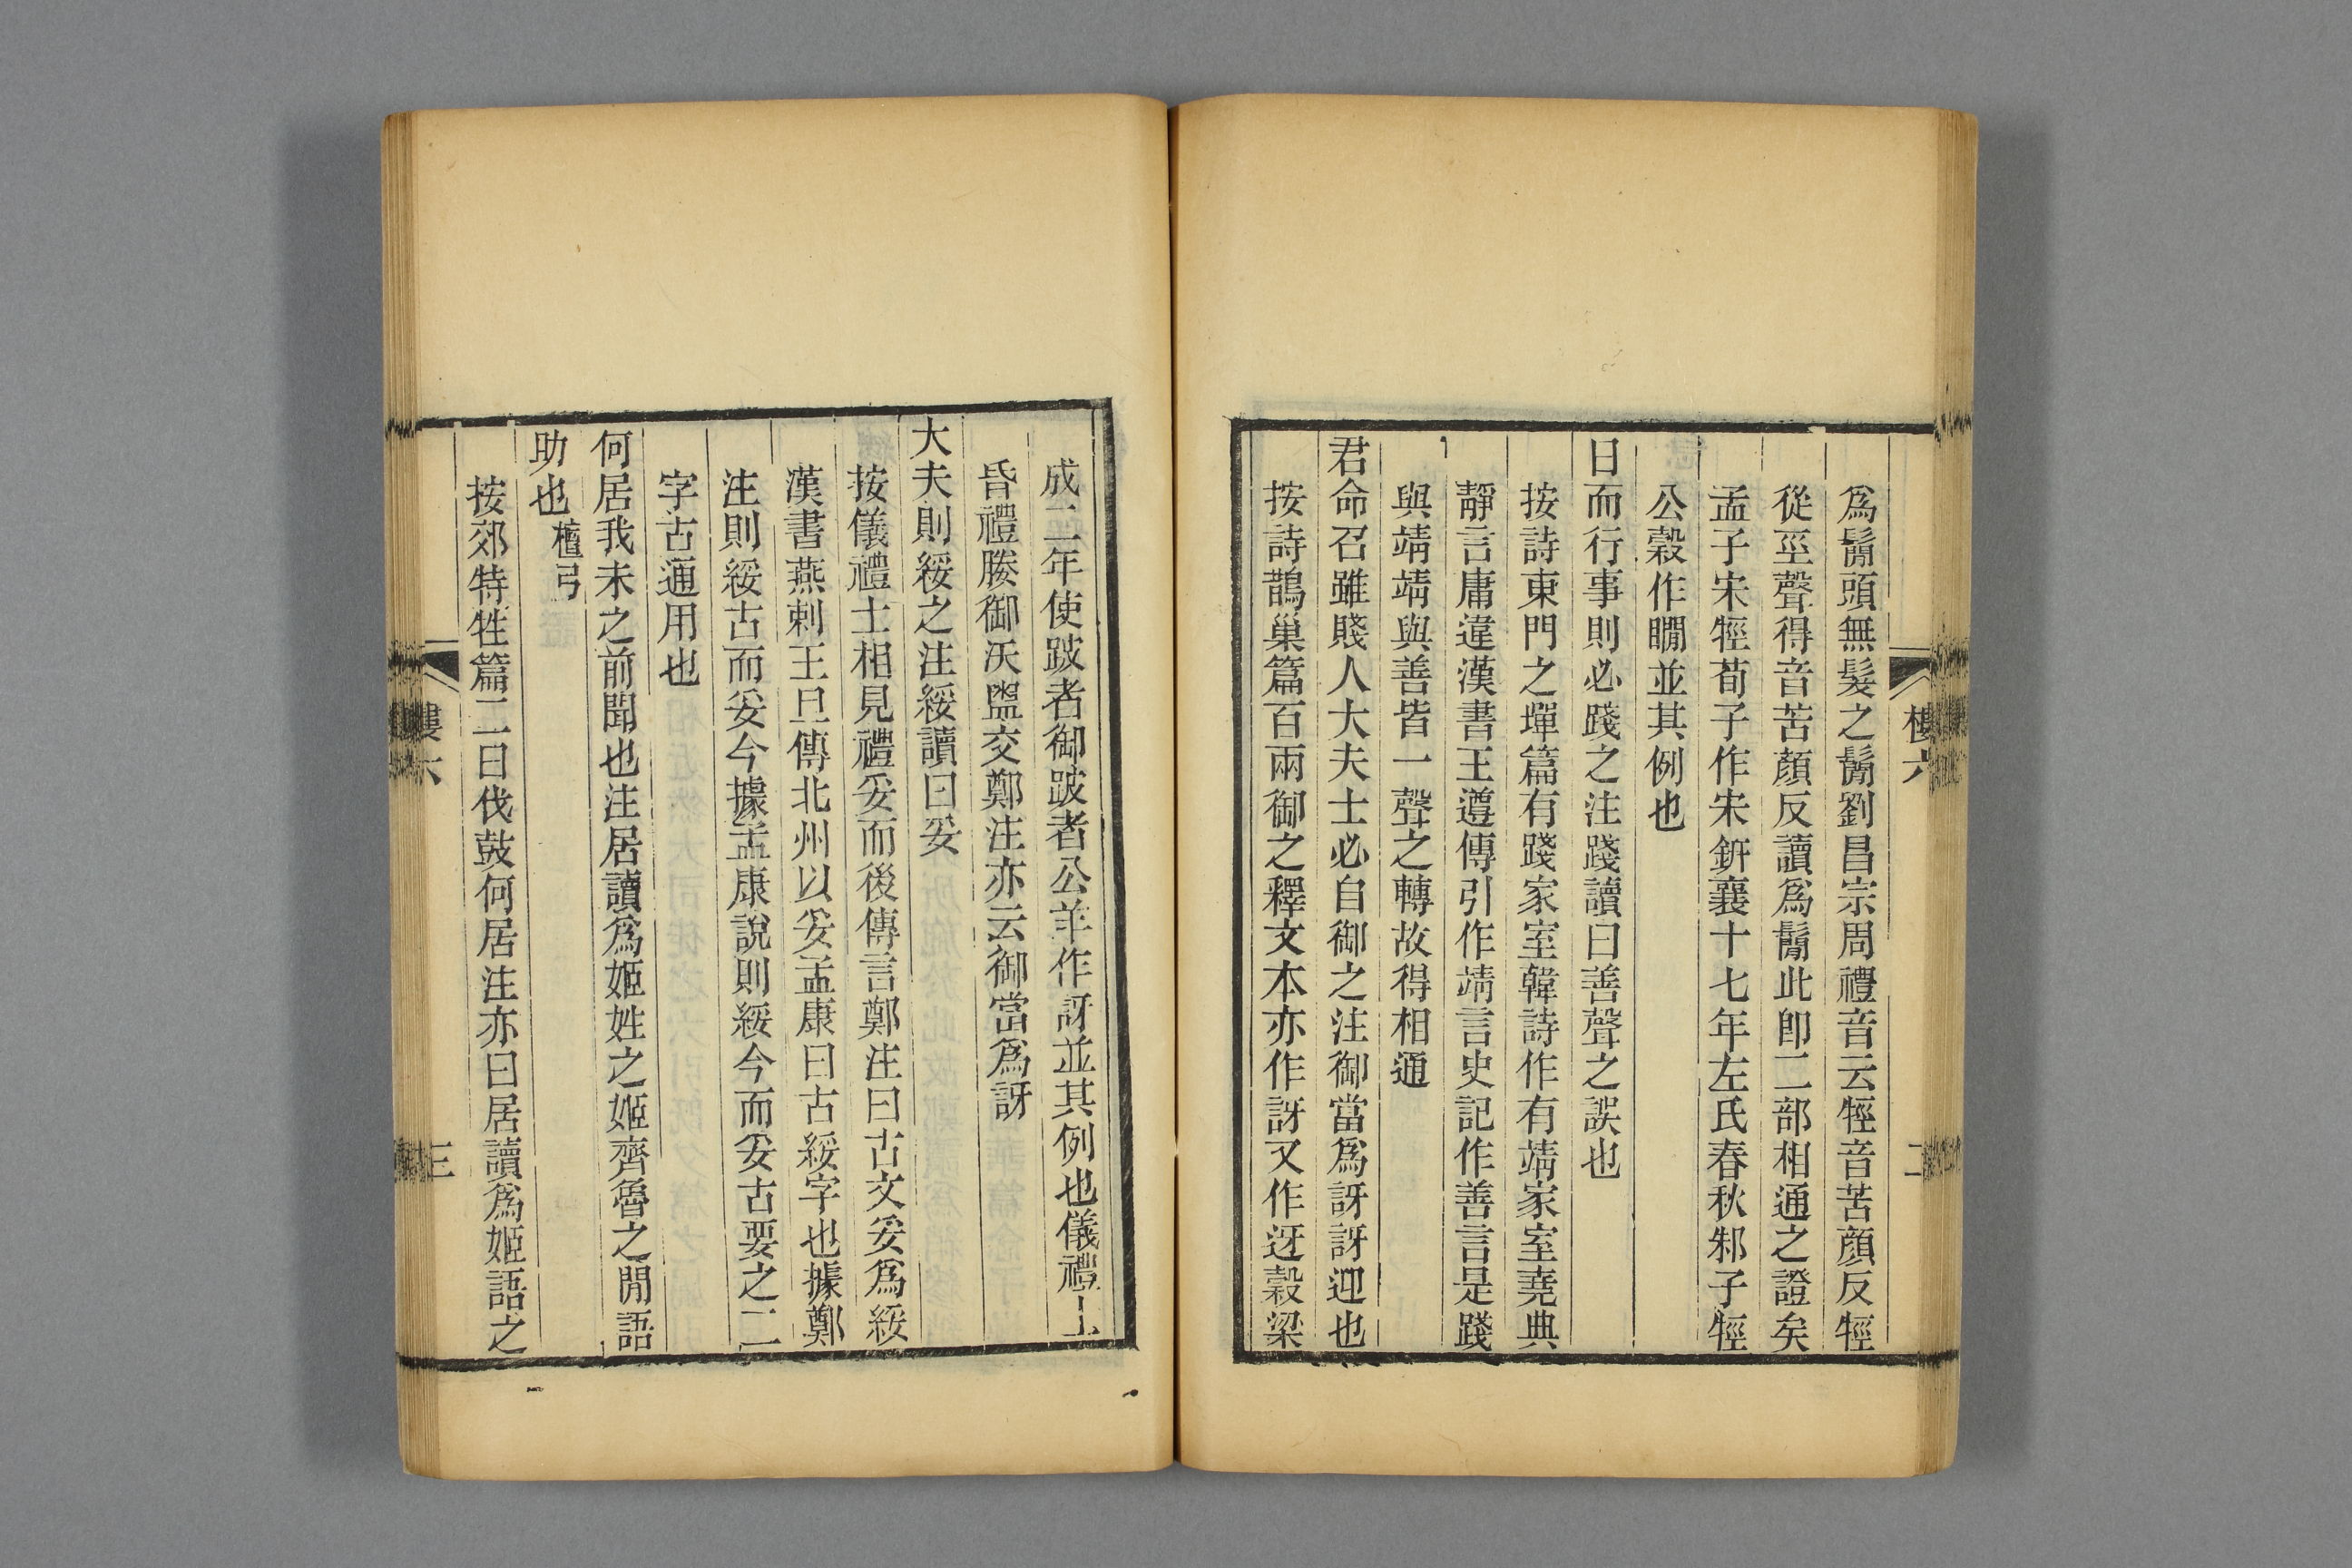 樓六
二
爲鬜頭無髮之鬜劉昌宗周禮音云牼音苦顔反牼
從巠聲得音苦顔反讀爲鬜此卽二部相通之證矣
孟子宋牼荀子作宋鈃襄十七年左氏春秋邾子牼
公穀作瞯並其例也
日而行事則必踐之注踐讀曰善聲之誤也
按詩東門之墠篇有踐家室韓詩作有靖家室堯典
靜言庸違漢書王遵傳引作靖言史記作善言是踐
與靖靖與善皆一聲之轉故得相通
君命召雖賤人大夫士必自御之注御當爲訝訝迎也
按詩鵲巢篇百兩御之釋文本亦作訝又作迓穀梁
成二年使跛者御跛者公羊作訝並其例也儀禮士
昏禮媵御沃盥交鄭注亦云御當爲訝
大夫則綏之注綏讀曰妥
按儀禮士相見禮妥而後傳言鄭注曰古文妥爲綏
漢書燕剌王旦傳北州以妥孟康曰古綏字也據鄭
注則綏古而妥今據孟康說則綏今而妥古要之二
字古通用也
何居我未之前聞也注居讀爲姬姓之姬齊魯之閒語
助也檀弓
按郊特牲篇二日伐鼓何居注亦曰居讀爲姬語之
樓六
三